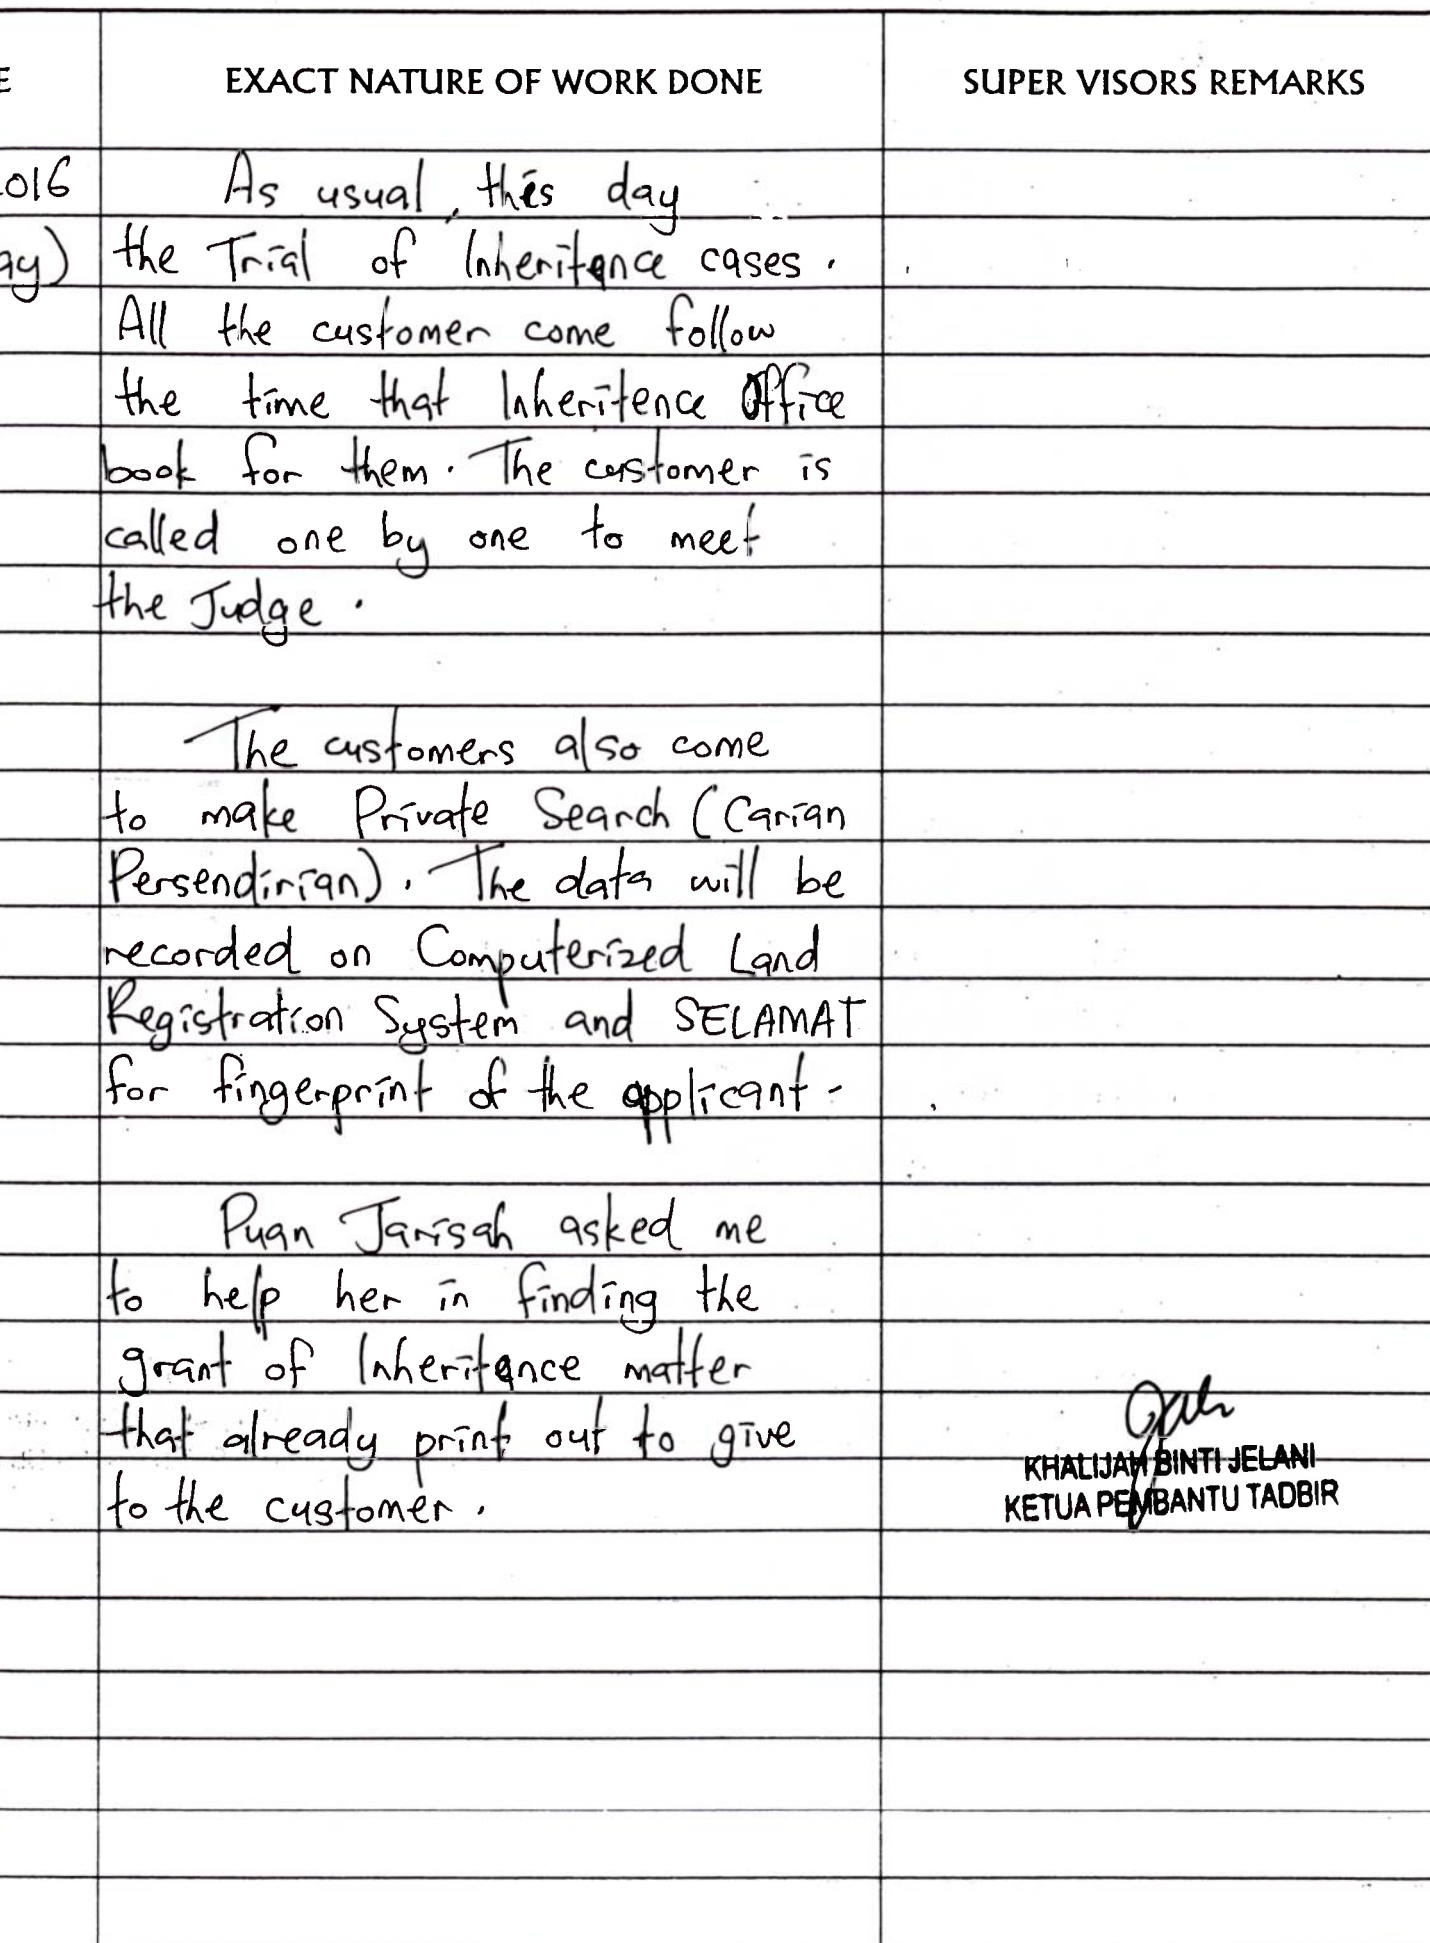 E EXACT NATURE OF WORK DONE SUPER VISORS REMARKS
016 As usual, this day
ay) the Trial of Inheritance cases.
All the customer come follow
the time that Inheritence Office
book for them. The customer is
called one by one to meet
the Judge.
The customers also come
to make Private Search (Carian
Persendirian). The data will be
recorded on Computerized Land
Registration System and SELAMAT
for fingerprint of the applicant.
Puan Jarisah asked me
to help her in finding the
grant of Inheritance matter
that already print out to give
to the customer.
KHALIJAH BINTI JELANI
KETUA PEMBANTU TADBIR